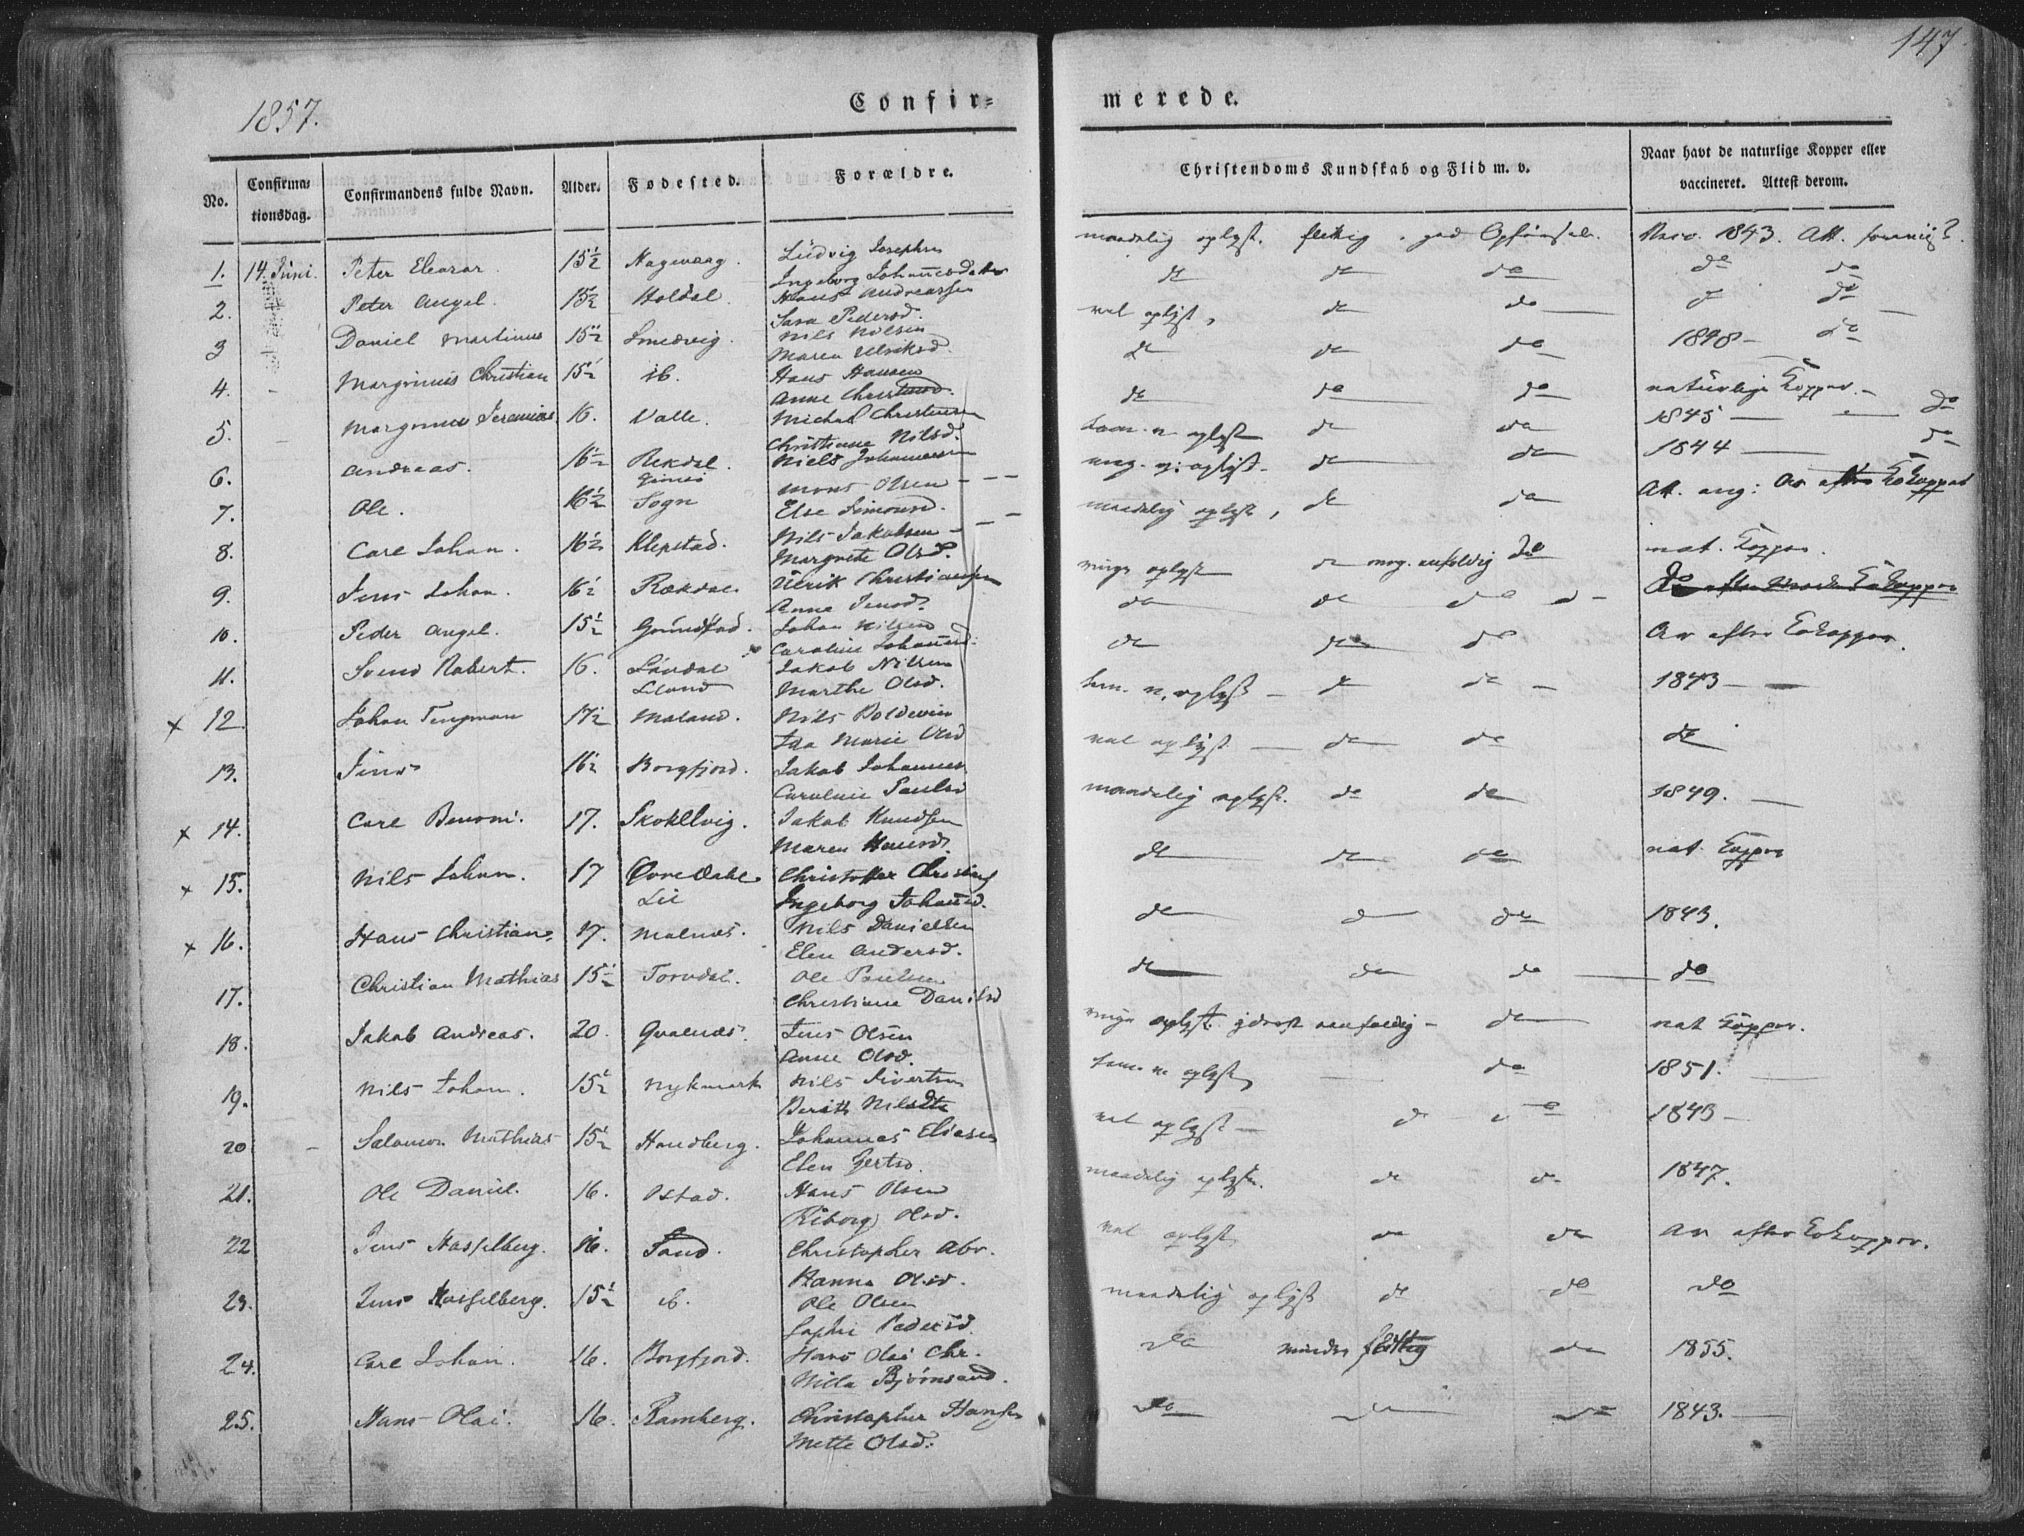 147
1857.
Confir=
merede.
No.
Confirma-
tionsdag.
Confirmandens fulde Navn.
Alder.
Fødested.
Forældre.
Christendoms Kundskab og Flid m. v.
Naar havt de naturlige Kopper eller
vaccineret. Attest derom.
1. 14. Juni. Peter Eleazar 15½ Ludvig Josephsen
Ingeborg Johannesdatter
maadelig oplyst. flittig. god Opførsel. Vacc. 1843. Att.
2. Peter Angel. 15½ Holdal. Hans Andreassen
Sara Pedersd.
do do do do do
3 Daniel Martinus 15½ Smedvig. Nils Nilsen
Maren Ulriksd.
vel oplyst, do do do do
4. Margrinus Christian 15½ ib. Hans Hansen
Anne
do do do 1848 do
5. Jeremias 16. Valle. Michal Christensen
Christiane Nilsd.
do do do naturlige Kopper.
6. Andreas. 16½ Rekdal. Niels Johannessen
oplyst do do 1845 do
7. Ole. 16½ Sogn Mons Olsen
Else Simonsd.
oplyst. do do 1844 do
8. Carl Johan. 16½ Klepstad. Nils Jakobsen
Margrete Olsd.
maadelig oplyst, do do Att. ang: Ar efter Kokopper
9. Jens Johan. 16½ Rækdal Ulrik Christiansen
Anna Jensd.
ringe oplyst do enfoldig do nat. Kopper.
10. Peder Angel. 15½ Grundstad. Johan Nilsen
Caroline Johannsd.
do do do
11. Svend Robert. 16. Jakob Nilsen
Marthe Olsd.
do do do Ar efter Kokopper.
x 12 Johan Tengman 17½ Moland. Nils Boldevin
Ida Marie Olsd
oplyst do do 1843
13. Jens 16½ Borgfjord. Jakob Johannesen
Caroline Paulsd
vel oplyst do do do
x 14. Carl Benoni. 17. Skokelvig. Jakob Knudsen
Maren Hansd.
maadelig oplyst. do do 1849.
x 15. Nils Johan. 17 Øvredahl
Lie
Christoffer
Ingeborg Johansd.
do do do nat Kopper
x 16. Hans Christian. 17. Molnæs. Nils Danielsen
Elen Andersd.
do do do 1843.
17. Christian Mathias 15½ Torvdal. Ole Paulsen
Christiane Danilsd
do do do do
18. Jakob Andreas. 20. Qvalnæs. Jens Olsen
Anne Olsd.
ringe oplyst. do nat Kopper.
19. Nils Johan. 15½ Nykmark Nils Sivertsen
Berith Nilsdtr
oplyst, do 1851.
20 Salamon Mathias 15½ Handberg. Johannes Eliasen
Elen Gertsd.
vel oplyst do do 1843
21. Ole Daniel. 16. Ostad. Hans Olsen
Riborg Olsd.
maadelig oplyst. do do 1847.
22 Jens Hasselberg. 16. Sand. Christopher Abr.
Hanna Olsd.
vel oplyst do do Ar efter Kokopper.
23. Jens Hasselberg. 15½ ib. Ole Olsen
Sophie Pedersd.
maadelig oplyst do do do
24. Carl Johan. 16. Borgfjord. Hans Olai Chr.
Nilla Bjørnsand.
do mindre flittig do 1855.
25. Hans Olai. 16. Ramberg. Christopher Hansen
Mette Olsd.
do do do 1843.